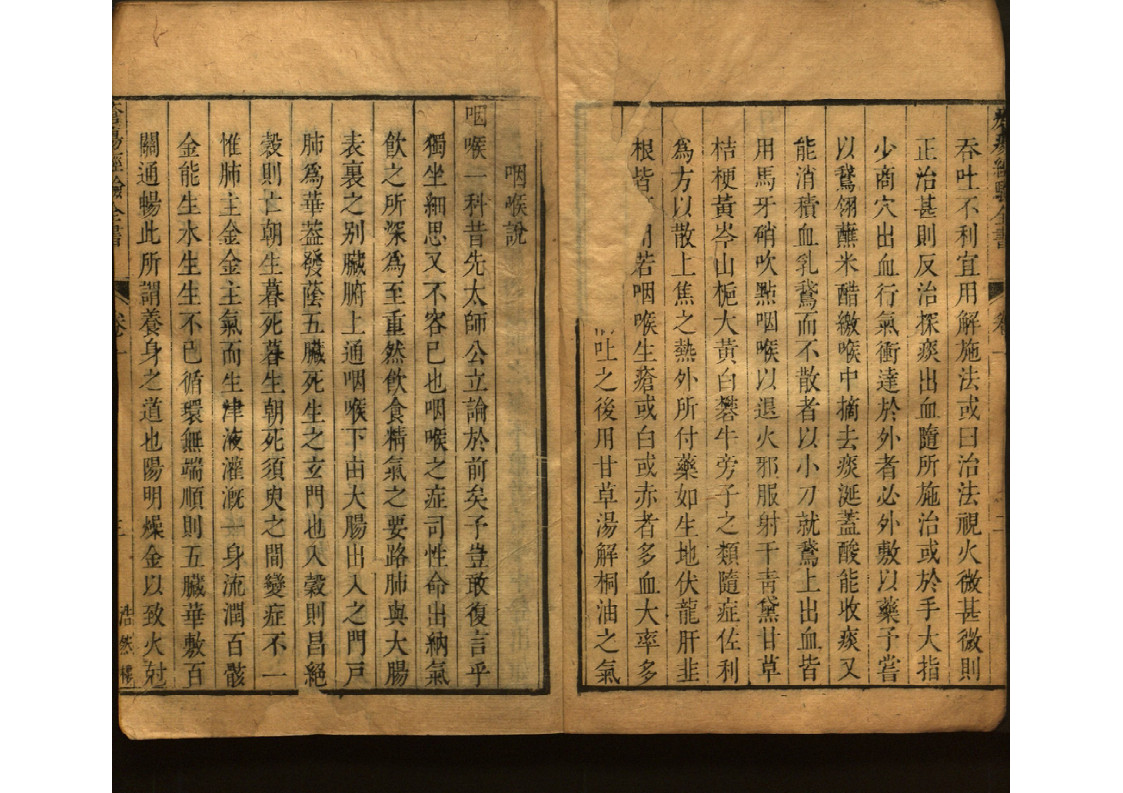 吞吐不利宜用解施法或曰治法視火微甚微則
正治甚則反治探痰出血隨所施治或於手大指
少商穴出血行氣衝達於外者必外敷以藥予嘗
以鵞翎蘸米醋繳喉中摘去痰涎蓋酸能收痰又
能消積血乳鵞而不散者以小刀就鵞上出血皆
用馬牙硝吹點咽喉以退火邪服射干青黛甘草
桔梗黃岑山梔大黃白礬牛旁子之類隨症佐利
爲方以散上焦之熱外所付藥如生地伏龍肝韭
根皆 若咽喉生瘡或白或赤者多血大率多
吐之後用甘草湯解桐油之氣
咽喉說
咽喉一科昔先太師公立論於前矣予豈敢復言乎
獨坐細思又不容已也咽喉之症司性命出納氣
飲之所深爲至重然飲食精氣之要路肺與大腸
表裏之别臟腑上通咽喉下由大腸出入之門戸
肺爲華葢發蔭五臟死生之玄門也入榖則昌絕
榖則亡朝生暮死暮生朝死須臾之間變症不一
惟肺主金金主氣而生津液灌漑一身流潤百骸
金能生水生生不已循環無端順則五臟華敷百
關通暢此所謂養身之道也陽明燥金以致火尅
瘡瘍經驗全書
卷一
三
浩然樓
卷一
二